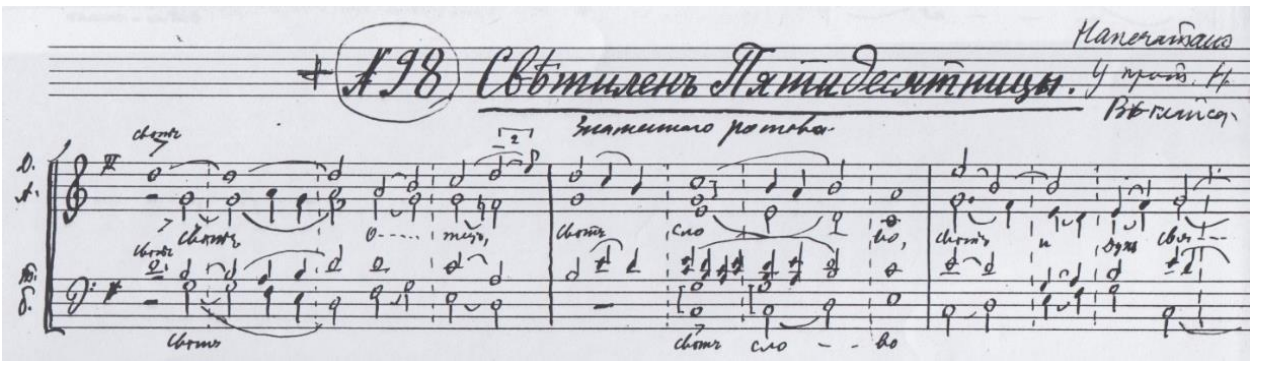 Напечатано
№ 98 Свѣтиленъ Пятидесятницы. у прот. Н.
Знаменнаго роспѣва.
свѣтъ
Д.
А.
свѣтъ, о----- тецъ, свѣтъ сло во, свѣтъ и духъ свя---
свѣтъ
Т.
Б.
свѣтъ свѣтъ сло - - - во